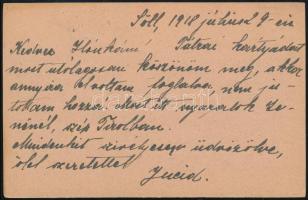 Söll, 1918 július 9-én
Kedves Ilonkám! Tátrai kártyádat
most utólagosan köszönöm meg, akkor
annyira el voltam foglalva, nem ju-
tottam hozzá. Most itt nyaralok Ze-
nénél, szép Tirolban.
Mindenkit szívélyesen üdvözölve,
ölel szeretettel
Jucid.